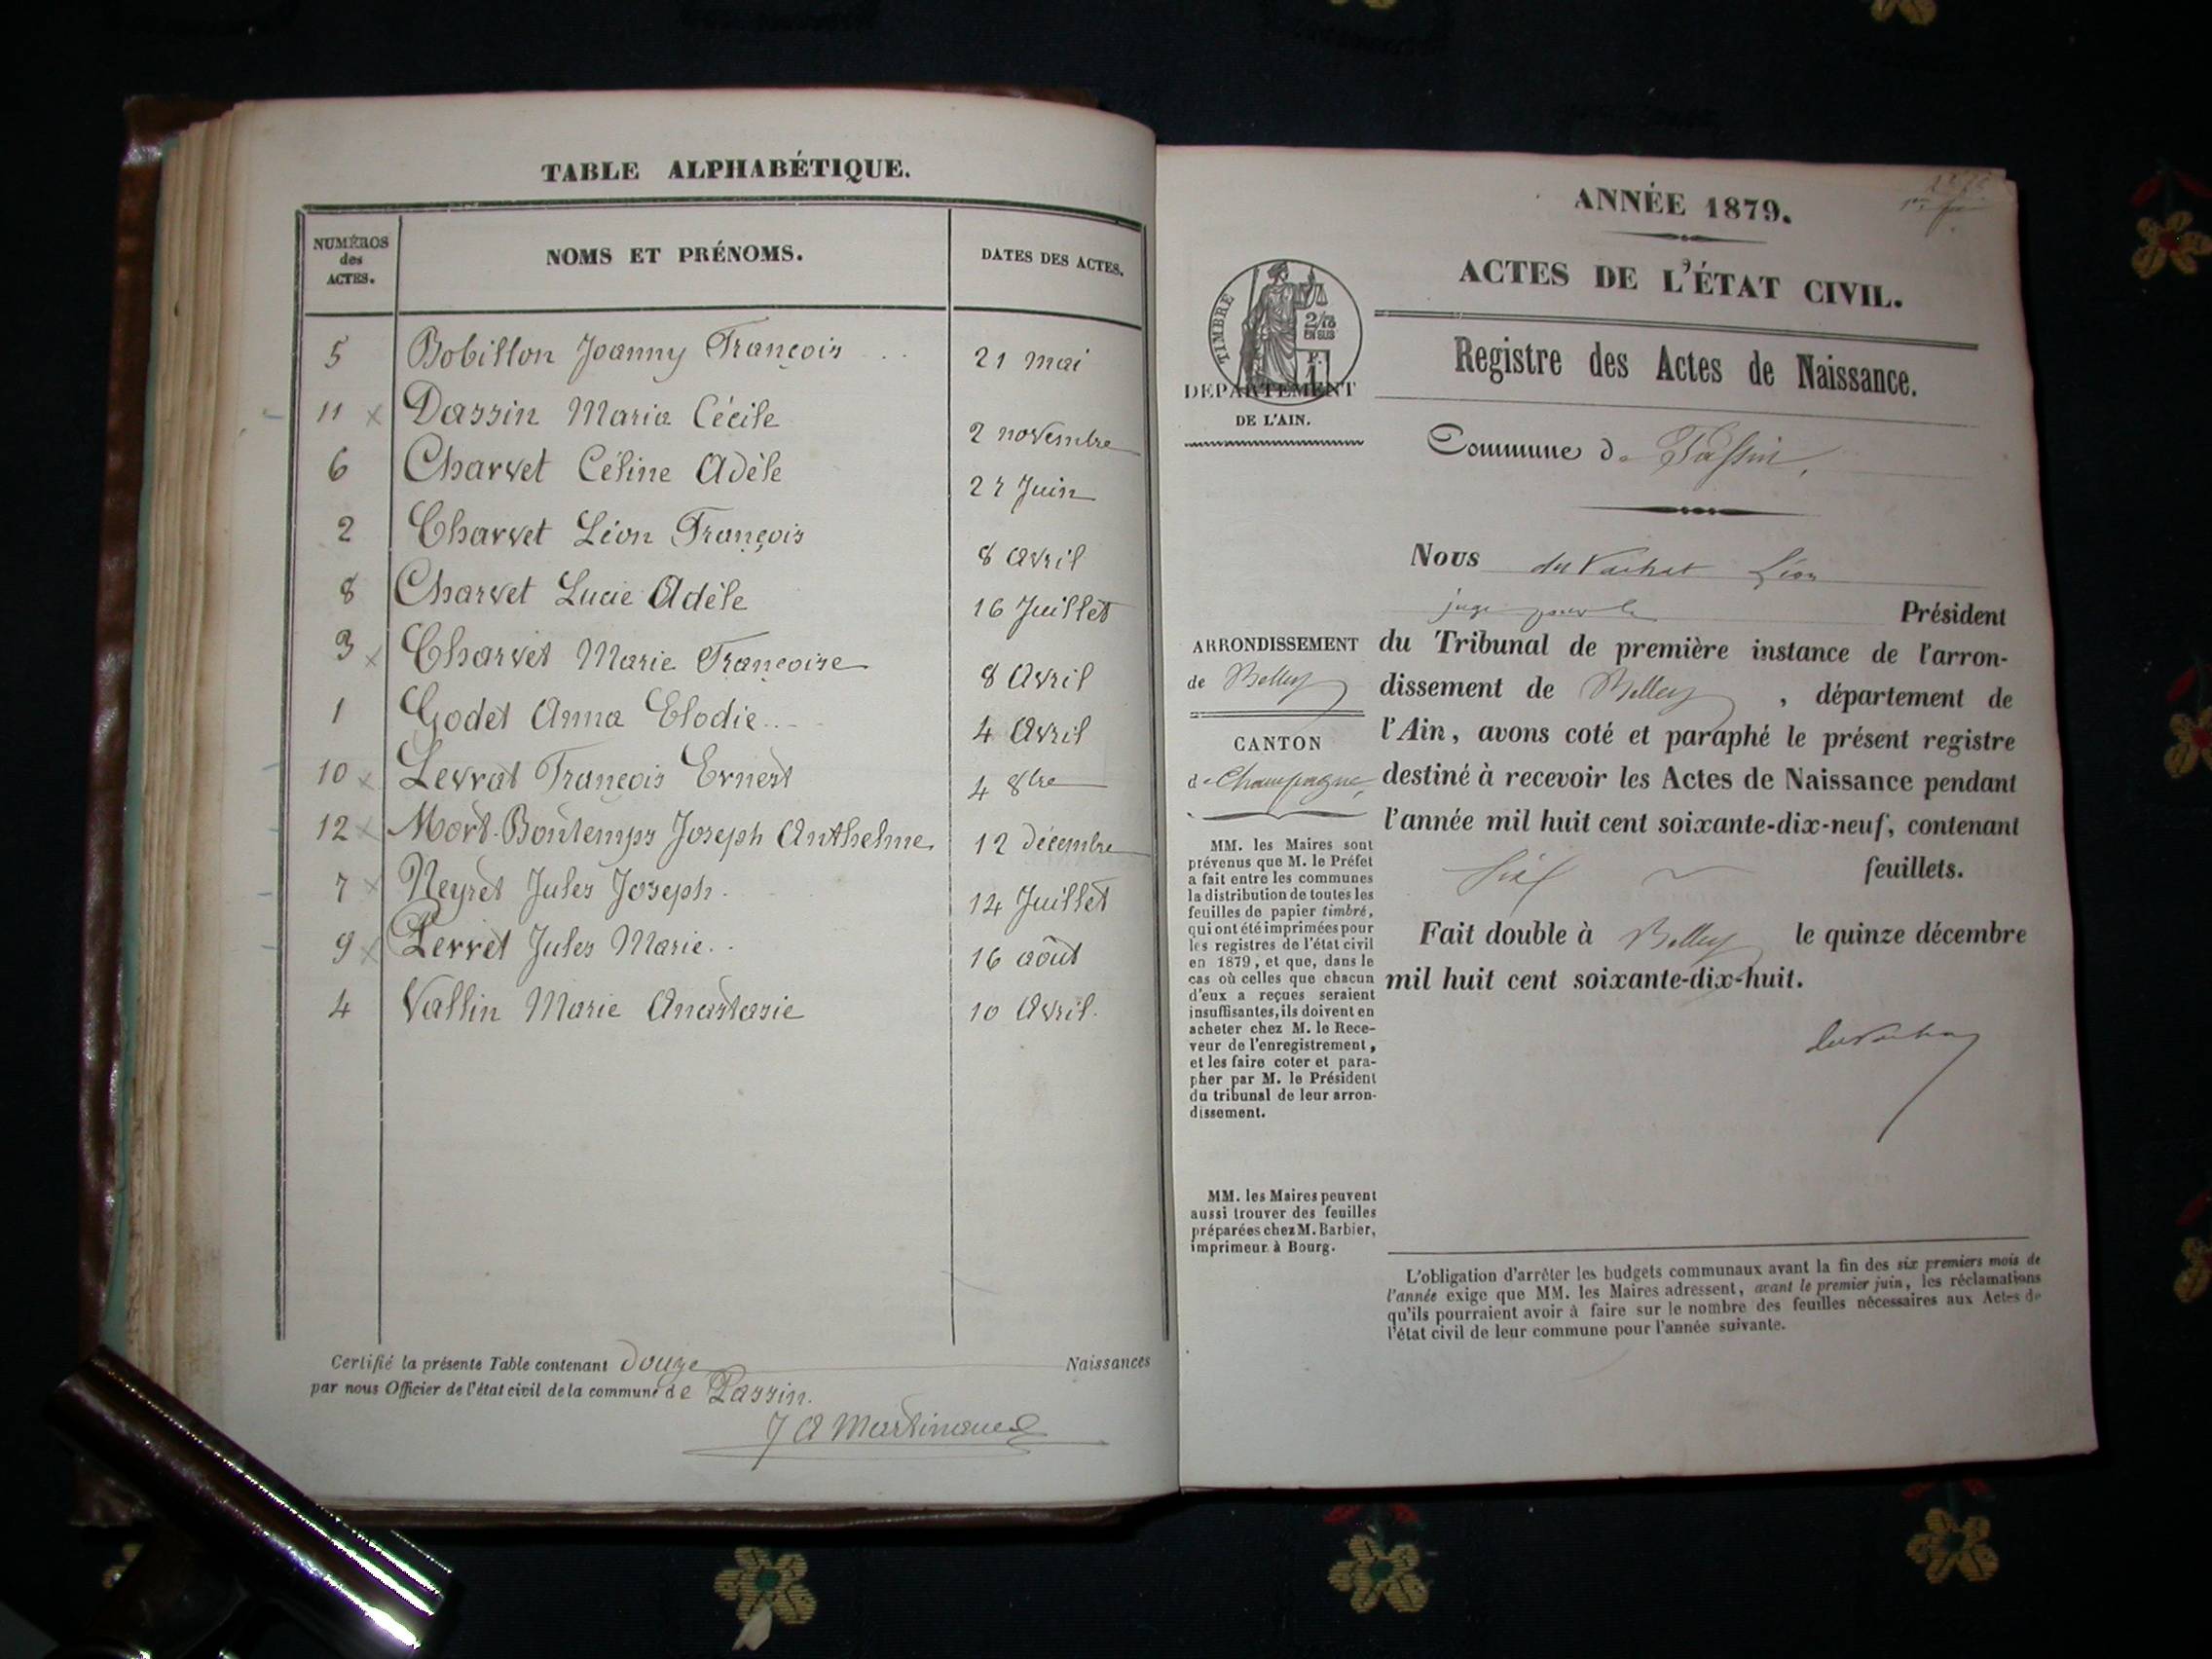 TABLE ALPHABÉTIQUE.
NUMÉROS des ACTES. NOMS ET PRÉNOMS. DATES DES ACTES.
5 Bobillon Joanny François 21 mai
11 x Dassin Maria Cécile 2 novembre
6 Charvet Céline Adèle 27 Juin
2 Charvet Léon François 8 avril
8 Charvet Lucie Adèle 16 Juillet
3 x Charvet Marie Françoise 8 Avril
1 Godet Anna Elodie 4 Avril
10 x Levrat François Ernest 4 8bre
12 x Mort-Bontemps Joseph Anthelme 12 décembre
7 x Neyret Jules Joseph 14 Juillet
9 x Perret Jules Marie 16 août
4 Vallin Marie Anastasie 10 Avril.
Certifié la présente Table contenant douze Naissances
par nous Officier de l'état civil de la commune de Passin.
J A Martinaud
ANNÉE 1879.
ACTES DE L'ÉTAT CIVIL.
Registre des Actes de Naissance.
TIMBRE
2/10
EN SUS
DEPARTEMENT
DE L'AIN.
Commune de Passin,
Nous du Vachat Léon
juge pour le Président
du Tribunal de première instance de l'arron-
dissement de Belley, département de
l'Ain, avons coté et paraphé le présent registre
destiné à recevoir les Actes de Naissance pendant
l'année mil huit cent soixante-dix-neuf, contenant
six feuillets.
Fait double à Belley le quinze décembre
mil huit cent soixante-dix-huit.
duVachat
ARRONDISSEMENT
de Belley
CANTON
de Champagne,
MM. les Maires sont
prévenus que M. le Préfet
a fait entre les communes
la distribution de toutes les
feuilles de papier timbré,
qui ont été imprimées pour
les registres de l'état civil
en 1879, et que, dans le
cas où celles que chacun
d'eux a reçues seraient
insuffisantes, ils doivent en
acheter chez M. le Rece-
veur de l'enregistrement,
et les faire coter et para-
pher par M. le Président
du tribunal de leur arron-
dissement.
MM. les Maires peuvent
aussi trouver des feuilles
préparées chez M. Barbier,
imprimeur à Bourg.
L'obligation d'arrêter les budgets communaux avant la fin des six premiers mois de
l'année exige que MM. les Maires adressent, avant le premier juin, les réclamations
qu'ils pourraient avoir à faire sur le nombre des feuilles nécessaires aux Actes de
l'état civil de leur commune pour l'année suivante.